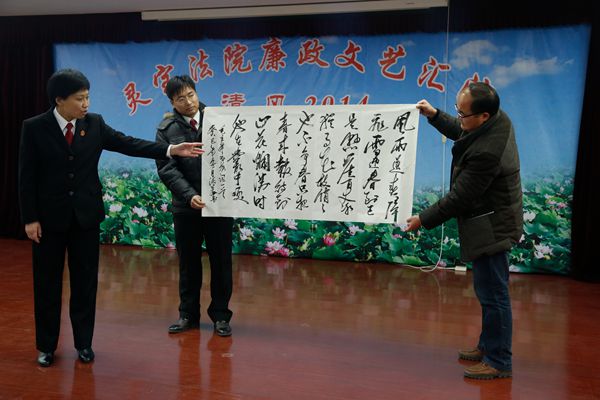 灵宝法院廉政文艺汇
清风 2014
風雨送春歸
飛雪迎春到已
是懸崖百丈冰
猶有花枝俏俏
也不争春只把
春来報待到
山花爛漫时
她在叢中笑